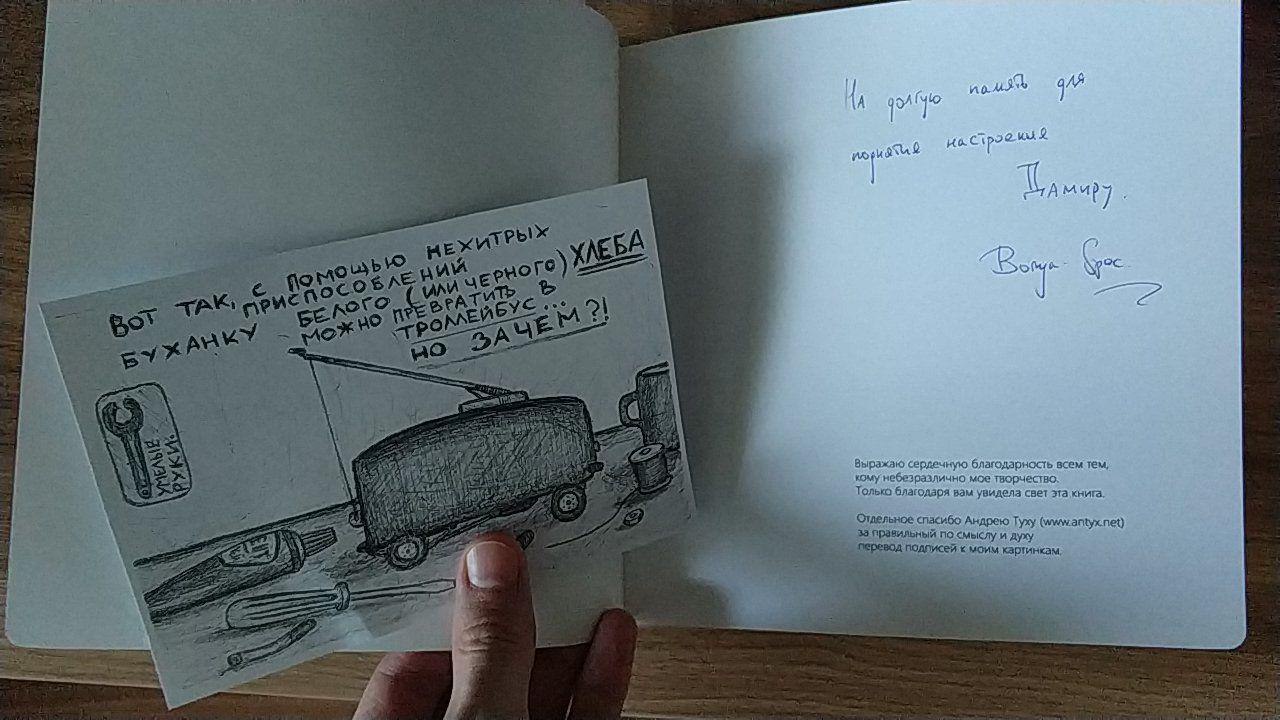 ВОТ ТАК, С ПОМОЩЬЮ НЕХИТРЫХ
ПРИСПОСОБЛЕНИЙ
БУХАНКУ БЕЛОГО (ИЛИ ЧЕРНОГО) ХЛЕБА
МОЖНО ПРЕВРАТИТЬ В
ТРОЛЛЕЙБУС...
НО ЗАЧЕМ?!
УМЕЛЫЕ
РУКИ
На долгую память для
поднятия настроения
Дамиру.
Выражаю сердечную благодарность всем тем,
кому небезразлично мое творчество.
Только благодаря вам увидела свет эта книга.
Отдельное спасибо Андрею Туху (www.antyx.net)
за правильный по смыслу и духу
перевод подписей к моим картинкам.